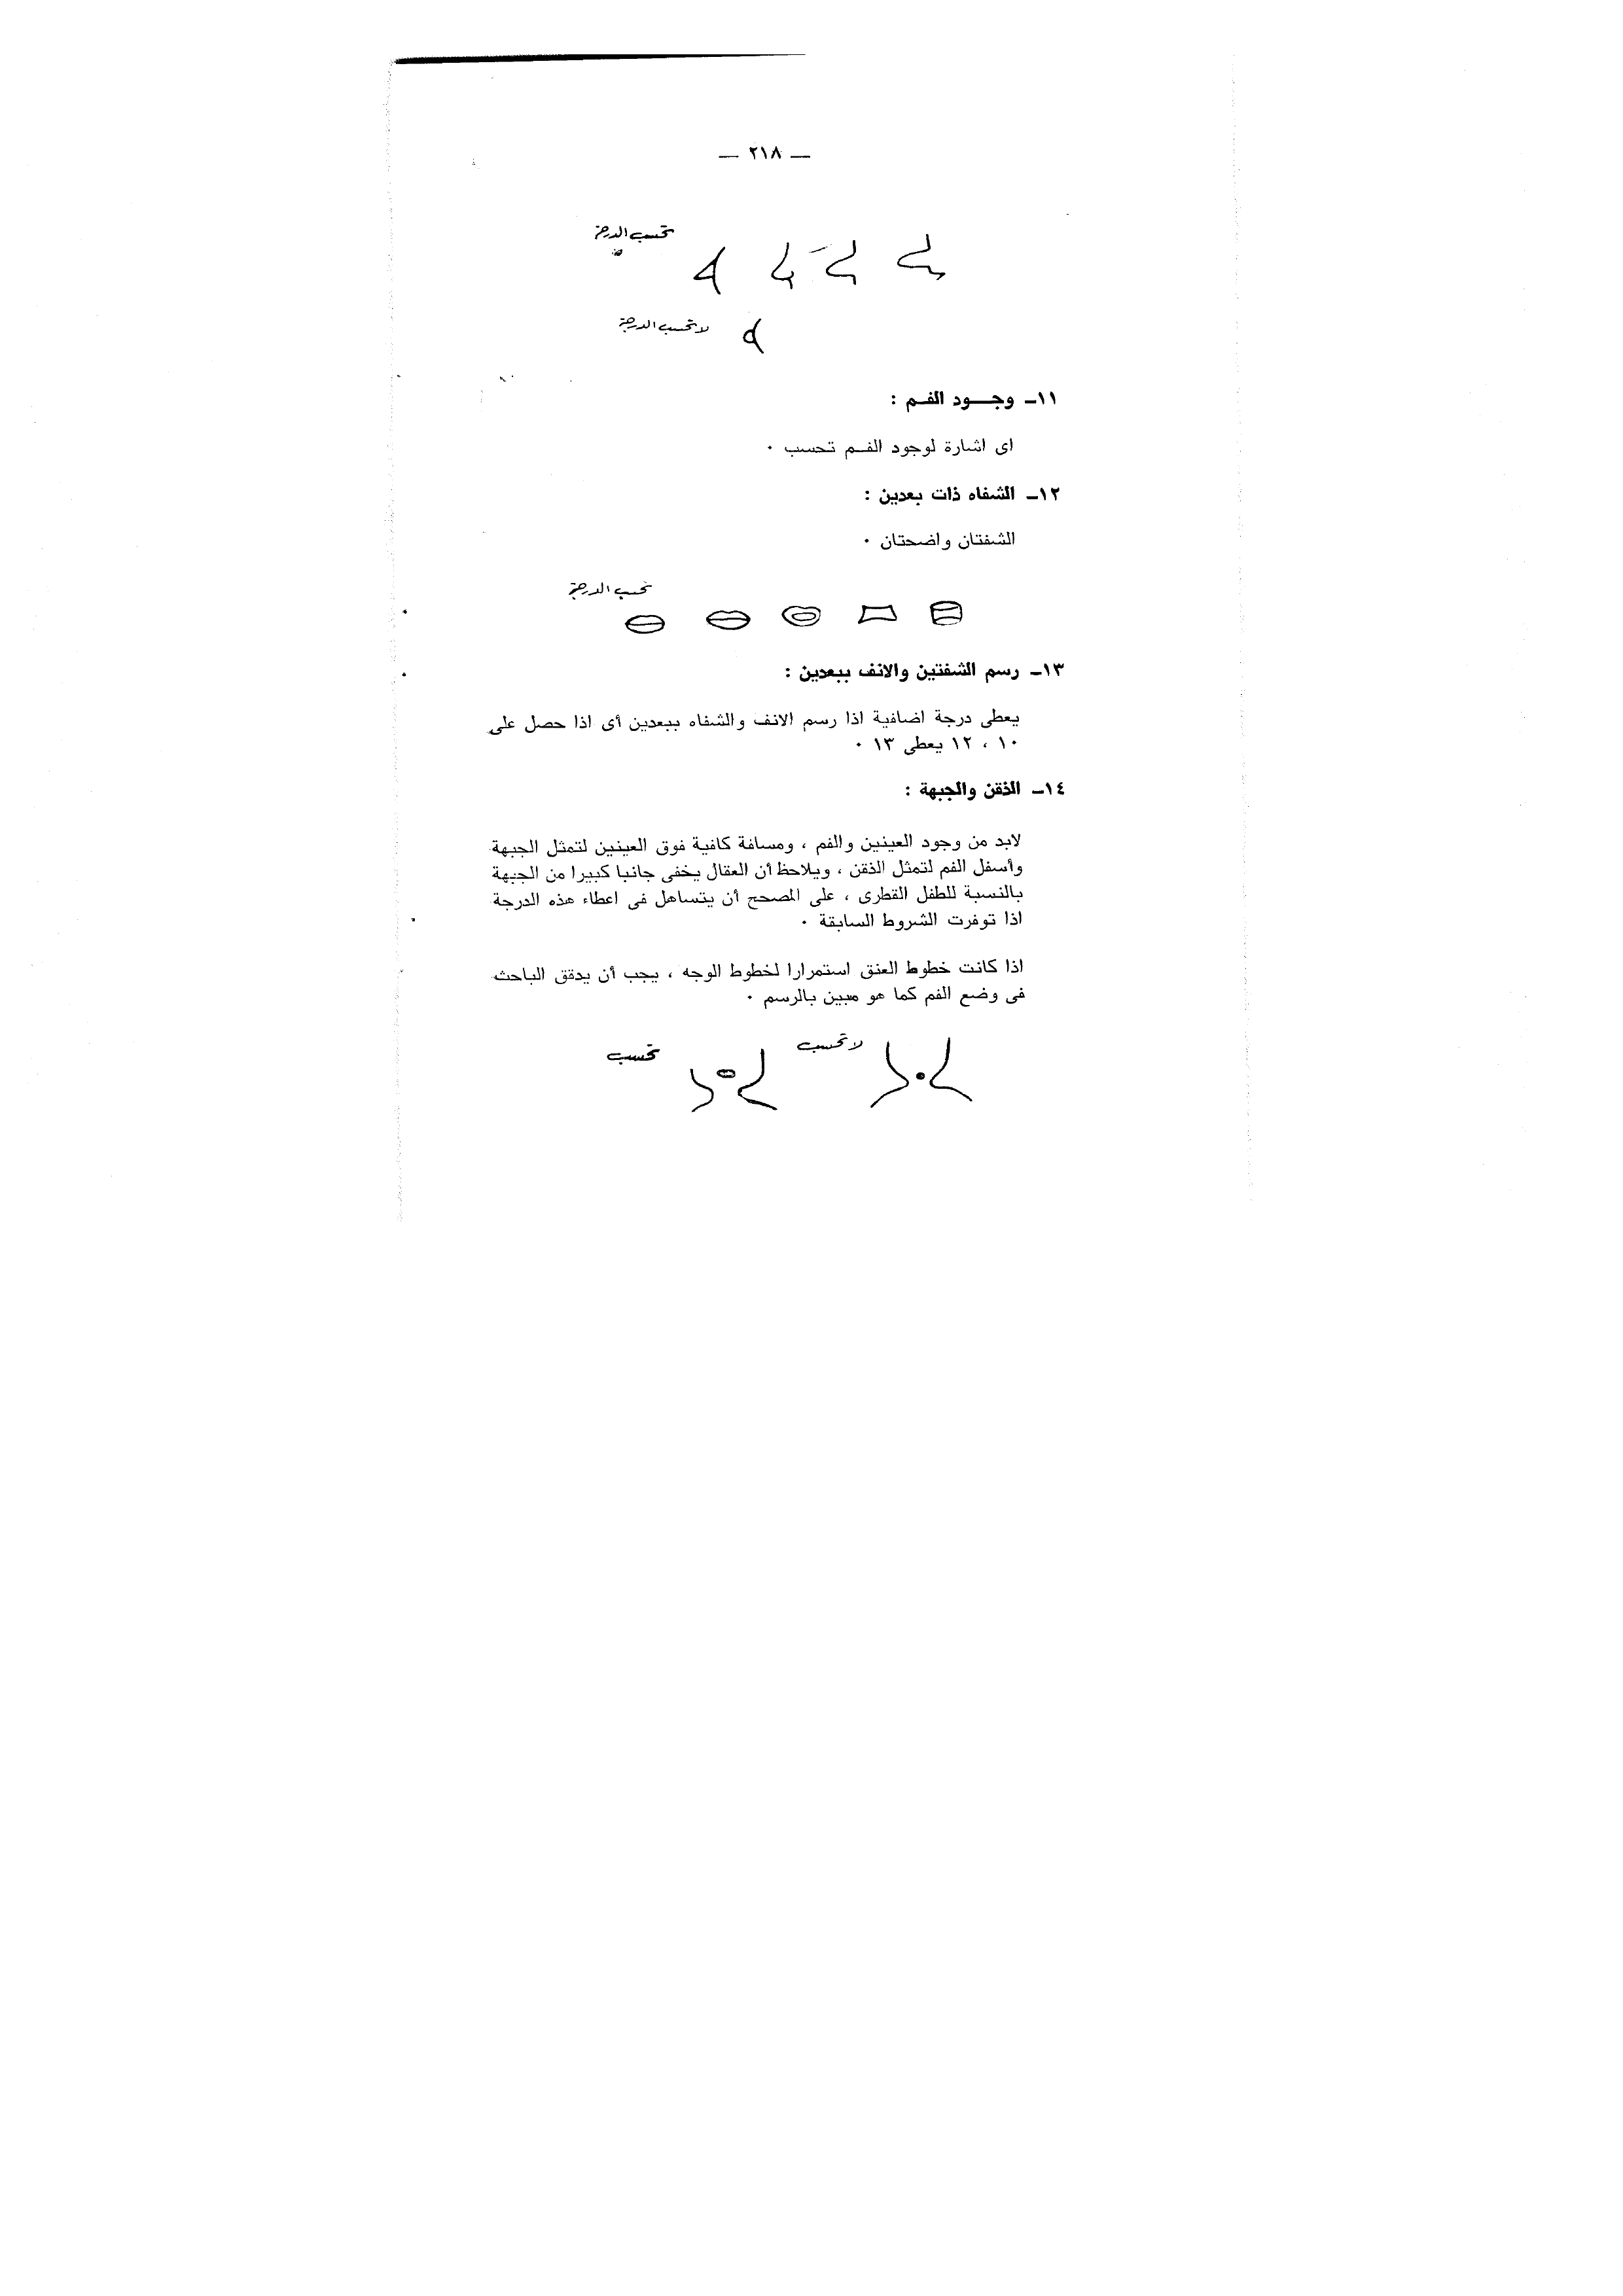 — ٢١٨ —
تحسب الدرجة
لا تحسب الدرجة
١١ـ وجـــود الفـم :
اى اشارة لوجود الفـم تحسب ٠
١٢ـ الشفاه ذات بعدين :
الشفتان واضحتان ٠
تحسب الدرجة
١٣ـ رسم الشفتين والانف ببعدين :
يعطى درجة اضافية اذا رسم الانف والشفاه ببعدين أى اذا حصل على
١٠ ، ١٢ يعطى ١٣ ٠
١٤ـ الذقن والجبهة :
لابد من وجود العينين والفم ، ومسافة كافية فوق العينين لتمثل الجبهة
وأسفل الفم لتمثل الذقن ، ويلاحظ أن العقال يخفى جانبا كبيرا من الجبهة
بالنسبة للطفل القطرى ، على المصحح أن يتساهل فى اعطاء هذه الدرجة
اذا توفرت الشروط السابقة ٠
اذا كانت خطوط العنق استمرارا لخطوط الوجه ، يجب أن يدقق الباحث
فى وضع الفم كما هو مبين بالرسم ٠
لا تحسب
تحسب